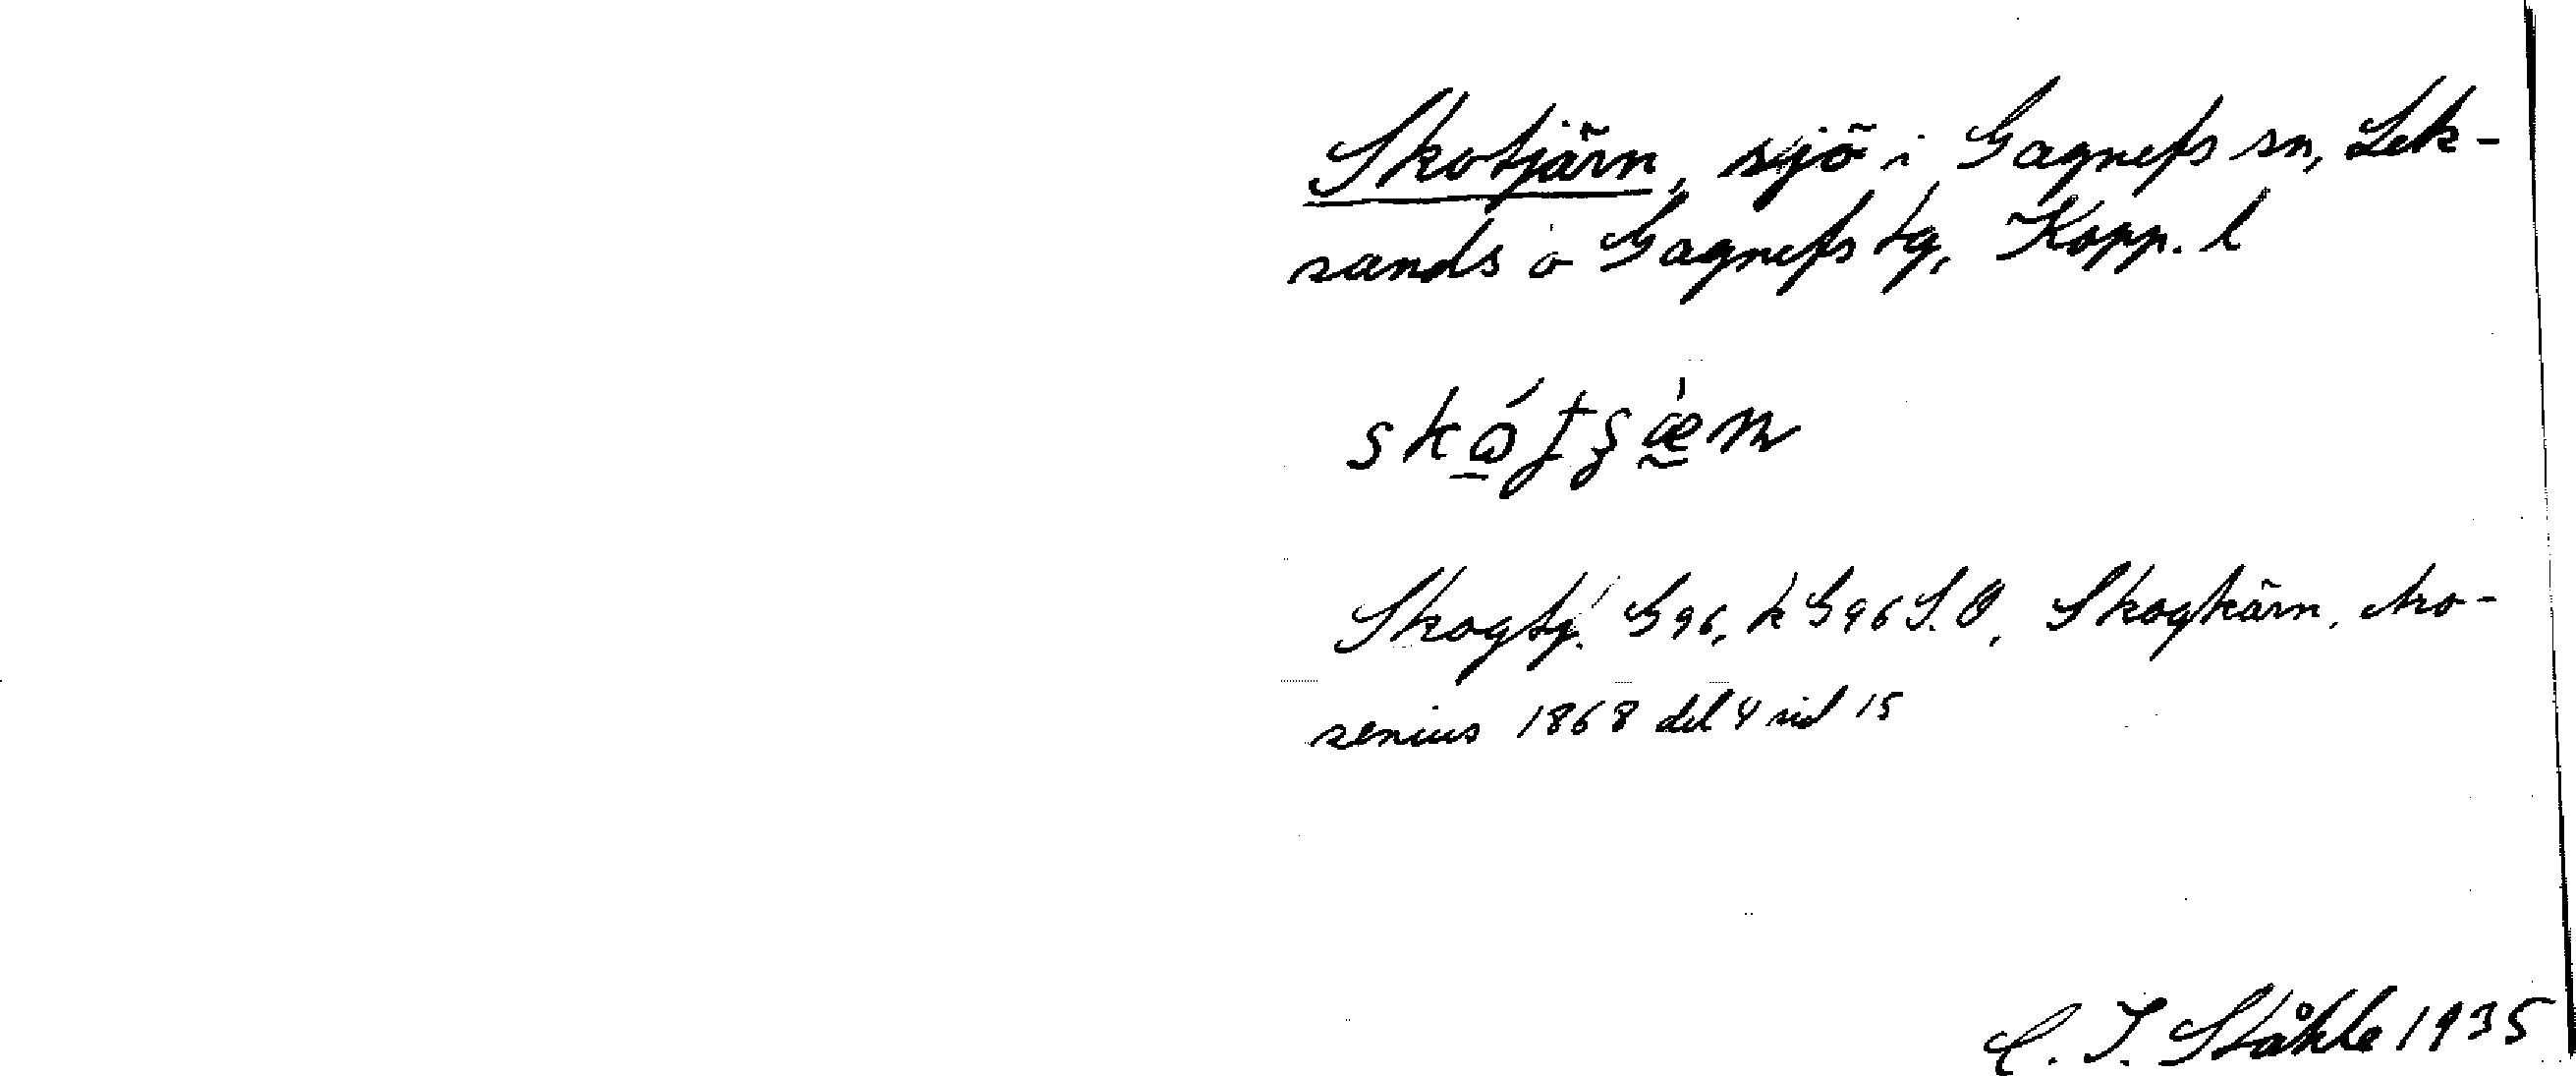 Skotjärn, sjö i Gagnefs sn, Lek-
sands o Gagnefs tg, Kopp. l
Skogtj. G96, k G96 S.O, Skogkärn, Mo-
senius 1868 del 4 sid 15
C. I. Ståhle 1935